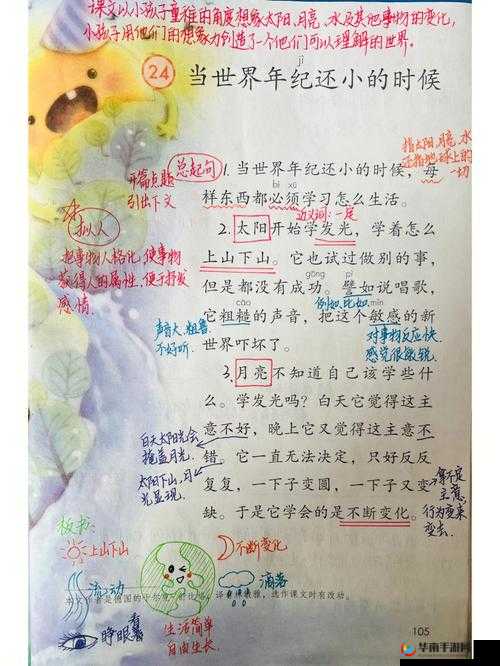 课文以小孩子童稚的角度想象太阳、月亮、水及其他事物的变化，
小孩子用他们的想象力创造了一个他们可以理解的世界。
jì
24 当世界年纪还小的时候
指太阳、月亮、水
还指地球上的
一切
总起句
开篇点题
引出下文
1. 当世界年纪还小的时候，每
bì xū
样东西都必须学习怎么生活。
近义词：一定
拟人
把事物人格化，使事物
获得人的属性，便于抒发
感情。
2. 太阳开始学发光，学着怎么
上山下山。它也试过做别的事，
gōng pì
但是都没有成功。譬如说唱歌，
例如、比如
cāo mǐn
它粗糙的声音，把这个敏感的新
世界吓坏了。
声音大、粗鲁
不好听。
对事物反应快
感觉很敏锐。
3. 月亮不知道自己该学些什
么。学发光吗？白天它觉得这主
意不好，晚上它又觉得这主意不
错。它一直无法决定，只好反反
复复，一下子变圆，一下子又变
缺。于是它学会的是不断变化。
白天太阳光会
掩盖月光。
太阳下山，月
光显现。
拿不定
主意，
行为变来
变去。
板书：
上山下山
不断变化
流动
滴落
睁眼看
生活简单
自由生长。
选作课文时有改动。
105
华南手游网